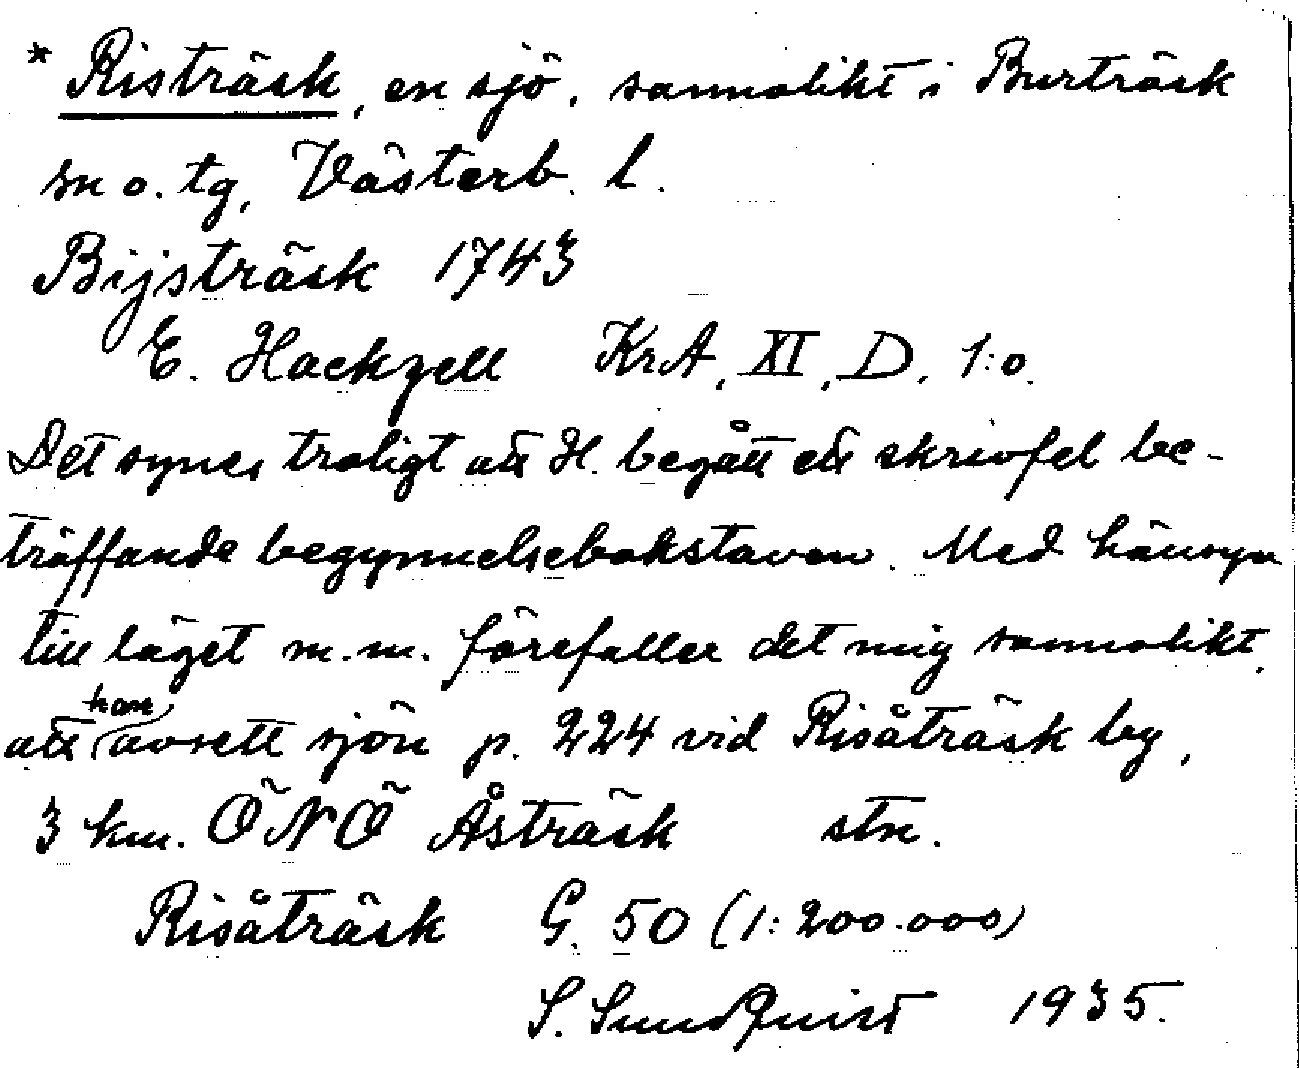 * Risträsk, en sjö, sannolikt i Burträsk
sn o. tg, Västerb. l.
Bijsträsk 1743
E. Hackzell KrA, XI, D, 1:o.
Det synes troligt att H. begått ett skrivfel be-
träffande begynnelsebokstaven. Med hänsyn
till läget m.m. förefaller det mig sannolikt,
att han avsett sjön p. 224 vid Risåträsk by,
3 km. ÖNÖ Åsträsk stn.
Risåträsk G. 50 (1:200.000)
S. Sundquist 1935.